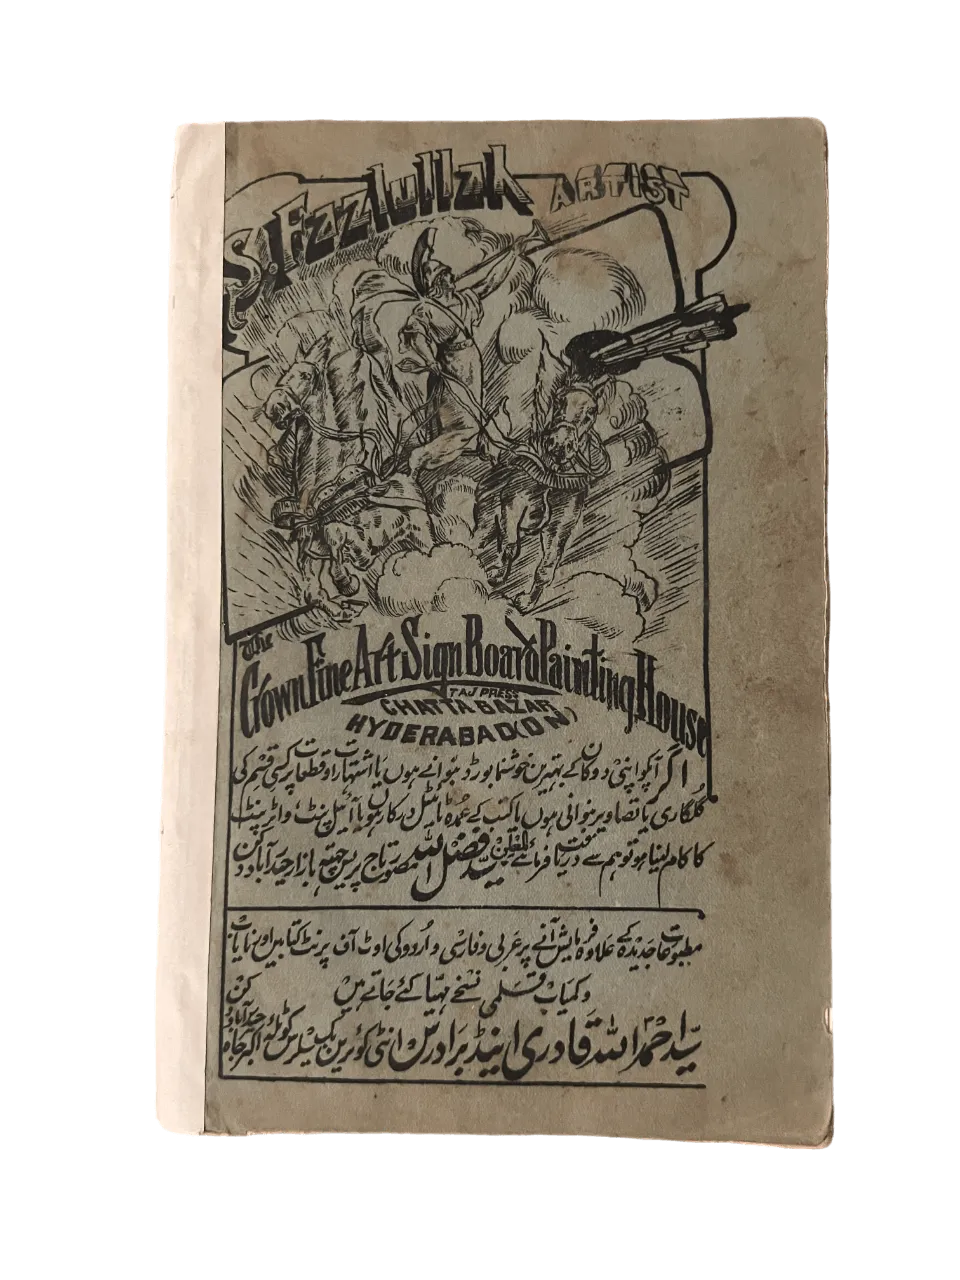 S. Fazlullah ARTIST
The
Crown Fine Art Sign Board Painting House
TAJ PRESS
CHATTA BAZAR
HYDERABAD (DN)
اگر آپکو اپنی دوکان کے بہترین خوشنما بورڈ بنوانے ہوں یا اشتہارات و قطعات پر کسی قسم کی
گلکاری یا تصاویر بنوانی ہوں یا کتب کے عمدہ ٹائٹل درکار ہوں یا آئیل پنٹ، واٹر پنٹ
کا کام لینا ہو تو ہم سے دریافت فرمائے المعلن سید فضل اللہ مصور تاج پریس چھتہ بازار حیدرآباد دکن
مطبوعات جدیدہ کے علاوہ فرمایش آنے پر عربی و فارسی و اردو کی اوٹ آف پرنٹ کتابیں اور نایاب
و کمیاب قلمی نسخے مہیا کئے جاتے ہیں
سید احمد اللہ قادری اینڈ برادرس انٹی کوئرین بک سیلرس کوٹلہ اکبر جاہ حیدرآباد دکن